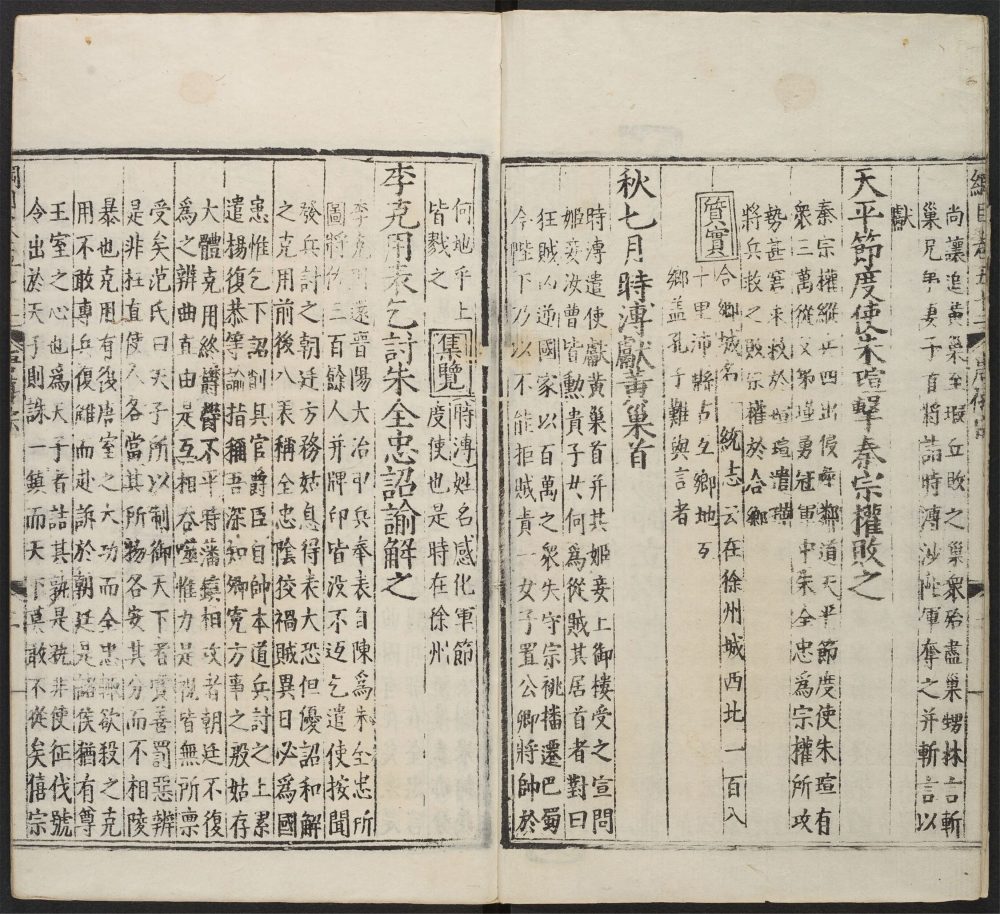 尚讓追黃巢至瑕丘敗之巢衆殆盡巢甥林言斬
巢兄弟妻子首將詣時溥沙陁軍奪之并斬言以
獻
天平節度使朱瑄擊秦宗權敗之
秦宗權縱兵四出侵噬鄰道天平節度使朱瑄有
衆三萬從父弟瑾勇冠軍中朱全忠爲宗權所攻
勢甚窘求救於瑄瑄遣瑾
將兵救之敗宗權於合鄉
質實
合鄉城名一統志云在徐州城西北一百八
十里沛縣古互鄉地
鄉盖孔子難與言者
秋七月時溥獻黃巢首
時溥遣使獻黃巢首并其姬妾上御樓受之宣問
姬妾汝曹皆勳貴子女何爲從賊其居首者對曰
狂賊凶逆國家以百萬之衆失守宗祧播遷巴蜀
今陛下乃以不能拒賊責一女子置公卿將帥於
何地乎上
皆戮之
集覽
時溥姓名感化軍節
度使也是時在徐州
李克用表乞討朱全忠詔諭解之
李克用還晋陽大治甲兵奉表自陳爲朱全忠所
圖將佐三百餘人并牌印皆没不返乞遣使按問
發兵討之朝廷方務姑息得表大恐但優詔和解
之克用前後八表稱全忠陰狡禍賊異日必爲國
患惟乞下詔削其官爵臣自帥本道兵討之上累
遣楊復恭等諭指稱吾深知卿寃方事之殷姑存
大體克用終鬱鬱不平時藩鎮相攻者朝廷不復
爲之辨曲直由是互相吞噬惟力是視皆無所禀
受矣范氏曰天子所以制御天下者賞善罰惡辨
是非枉直使人各當其所物各安其分而不相陵
暴也克用有復唐室之大功而全忠輒欲殺之克
用不敢專兵復讎而赴訴於朝廷是諸侯猶有尊
王室之心也爲天子者詰其孰是孰非使征伐號
令出於天子則誅一鎮而天下莫敢不從矣僖宗